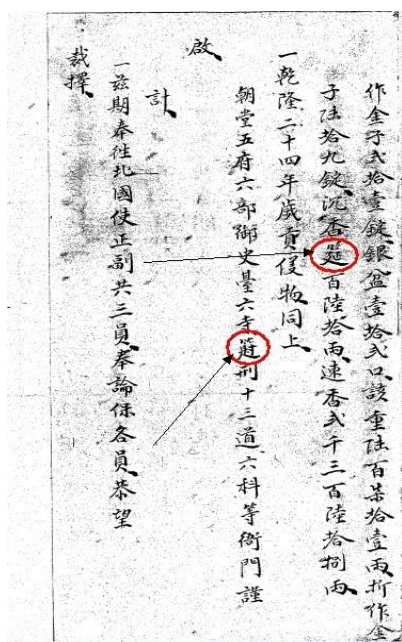 作金子弍拾壹錠銀盆壹拾弍口該重陸百柒拾壹兩折作金
子陸拾九錠沉香百陸拾兩速香弍千三百陸拾捌兩
一乾隆二十四年歲貢儀物同上
朝堂五府六部御史臺六寺刑十三道六科等衙門謹
啟
計
一兹期奉往北國使正副共三員奉論保各員恭望
裁擇